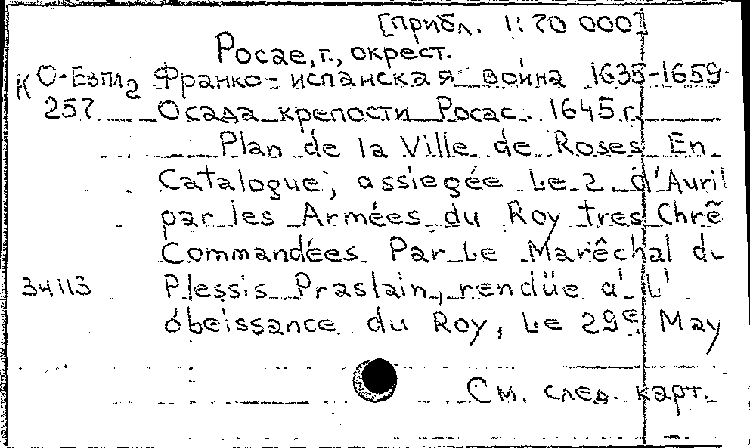 [прибл. 1:70 000]
Росас, г., окрест.
К О-Евпл 2 Франко-испанская война 1635-1659
257 Осада крепости Росас. 1645 г.
Plan de la Ville de Roses En
Catalogue, assiegée Le 2 d'Auril
par les Armées du Roy tres Chrê
Commandées Par Le Marêchal du
34113 Plessis Praslain, rendüe a' L'
óbeissance du Roy, Le 29e May
См. след. карт.